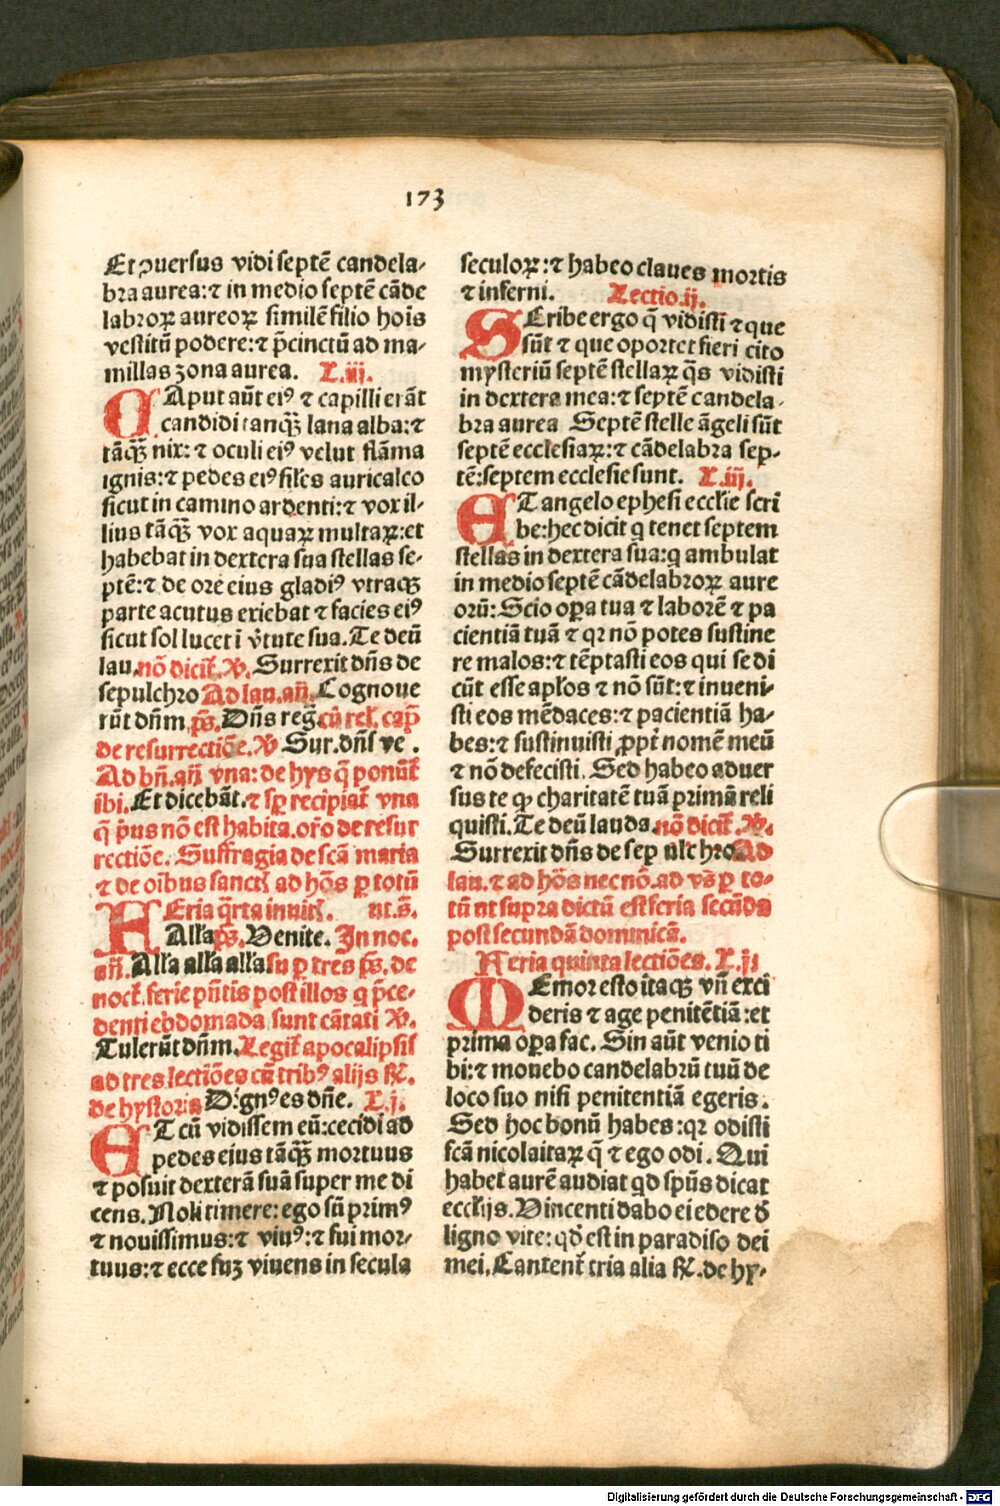 173
Et ꝯuersus vidi septē candela-
bra aurea: ⁊ in medio septē cāde
labroꝝ aureoꝝ similē filio hoīs
vestitū podere: ⁊ p̄cinctū ad ma-
millas zona aurea. L.iij.
CAput aūt eiꝰ ⁊ capilli erāt
candidi tanꝙ̄ lana alba: ⁊
tāꝙ̄ nix: ⁊ oculi eiꝰ velut flāma
ignis: ⁊ pedes eiꝰ siles auricalco
sicut in camino ardenti: ⁊ vox il-
lius tāꝙ̄ vox aquaꝝ multaꝝ: et
habebat in dextera sua stellas se-
ptē: ⁊ de ore eius gladiꝰ vtraqꝫ
parte acutus exiebat ⁊ facies eiꝰ
sicut sol lucet ī v̓tute sua. Te deū
lau. nō dicit̄. ℣. Surrexit dn̄s de
sepulchro Ad lau. an̄. Cognoue
rūt dn̄m. ps̄. Dn̄s reḡ. cū rel̄. cap̄
de resurrectiōe. ℣ Sur. dn̄s ve.
Ad bn̄. an̄ vna: de hys q̄ ponūt̄
ibi. Et dicebāt. ⁊ sꝑ recipiat̄ vna
q̄ p̄us nō est habita. oro de resur
rectiōe. Suffragia de scā maria
⁊ de oībus sanctꝭ ad hōs ꝑ totū
FEria q̄rta inuit̄. ut. s̄.
Alla ps̄. Venite. In noc.
an̄. Alla alla alla suꝑ tres ps̄. de
noct̄. ferie pn̄tis post illos q p̄ce-
denti ebdomada sunt cātati ℣.
Tulerūt dn̄m. Legit̄ apocalipsis
ad tres lectiōes cū tribꝰ alijs ℟.
de hystoria Dignꝰ es dn̄e. L.j.
ET cū vidissem eū: cecidi ad
pedes eius tāꝙ̄ mortuus
⁊ posuit dexterā suā super me di
cens. Noli timere: ego sū primꝰ
⁊ nouissimus: ⁊ viuꝰ: ⁊ fui mor-
tuus: ⁊ ecce suꝫ viuens in secula
seculoꝝ: ⁊ habeo claues mortis
⁊ inferni. Lectio.ij.
SCribe ergo q̄ vidisti ⁊ que
sūt ⁊ que oportet fieri cito
mysteriū septē stellaꝝ q̄s vidisti
in dextera mea: ⁊ septē candela-
bra aurea Septē stelle āgeli sūt
septē ecclesiaꝝ: ⁊ cādelabra sep-
tē: septem ecclesie sunt. L.iij.
ET angelo ephesi ecclie scri
be: hec dicit q tenet septem
stellas in dextera sua: q ambulat
in medio septē cādelabroꝝ aure
orū: Scio oꝑa tua ⁊ laborē ⁊ pa
cientiā tuā ⁊ qꝛ nō potes sustine
re malos: ⁊ tēptasti eos qui se di
cūt esse aplos ⁊ nō sūt: ⁊ inueni-
sti eos mēdaces: ⁊ pacientiā ha-
bes: ⁊ sustinuisti ꝓpt̄ nomē meū
⁊ nō defecisti. Sed habeo aduer
sus te ꝙ charitatē tuā primā reli
quisti. Te deū lauda. nō dicit̄. ℣.
Surrexit dn̄s de sepulchro. Ad
lau. ⁊ ad hōs necnō. ad vs̄ꝑ to-
tū ut supra dictū est feria secūda
post secundā dominicā.
Feria quinta lectiōes. L.j
MEmor esto itaqꝫ vn̄ exci
deris ⁊ age penitētiā: et
prima oꝑa fac. Sin aūt venio ti
bi: ⁊ mouebo candelabrū tuū de
loco suo nisi penitentiā egeris.
Sed hoc bonū habes: qꝛ odisti
fcā nicolaitaꝝ q̄ ⁊ ego odi. Qui
habet aurē audiat qd sp̄us dicat
eccl̄ijs. Vincenti dabo ei edere d̄
ligno vite: qd̄ est in paradiso dei
mei. Cantent̄ tria alia ℟. de hy-
Digitalisierung gefördert durch die Deutsche Forschungsgemeinschaft - DFG